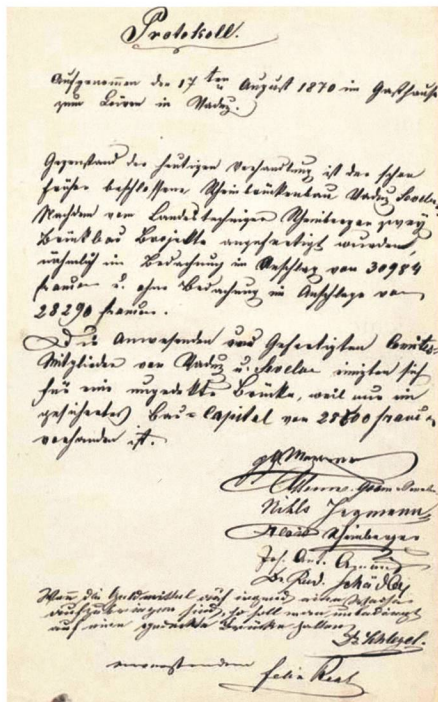 Protokoll.
Aufgenommen den 17ten August 1870 im Gasthause
zum Löwen in Vaduz.
Gegenstand der heutigen Verhandlung ist der schon
früher beschlossene Rheinbrückenbau Vaduz Sevelen
Nachdem vom Landestechniker Rheinberger zwey
Brückbau Projekte angefertigt wurden,
nähmlich in Bedachung im Anschlag von 30984
Franken u. ohne Bedachung im Anschlage von
28290 Franken.
Die Anwesenden und Gefertigten Comites-
Mitglieder von Vaduz u. Sevelen einigten sich
für eine ungedekte Brüke, weil nur ein
gesichertes Bau-Capital von 28500 Franken
vorhanden ist.
Rheinberger
Jos. Ant.
Dr. Rud. Schädler
Wenn die Geldmittel auf irgend eine Weise
aufzubringen sind, so soll man unbedingt
auf eine gedeckte Brücke halten
Dr. Schlegel.
einverstanden
Felix Real